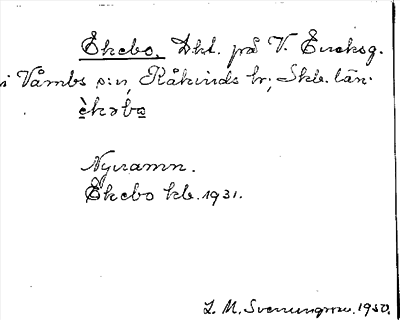 Ekebo, Dkl. på V. Enehag.
i Våmbs s:n, Kåkinds hr., Skb. län.
èkəbo
Nyvamn.
Ekebo kb. 1931.
L. M. Svennungsson. 1950.